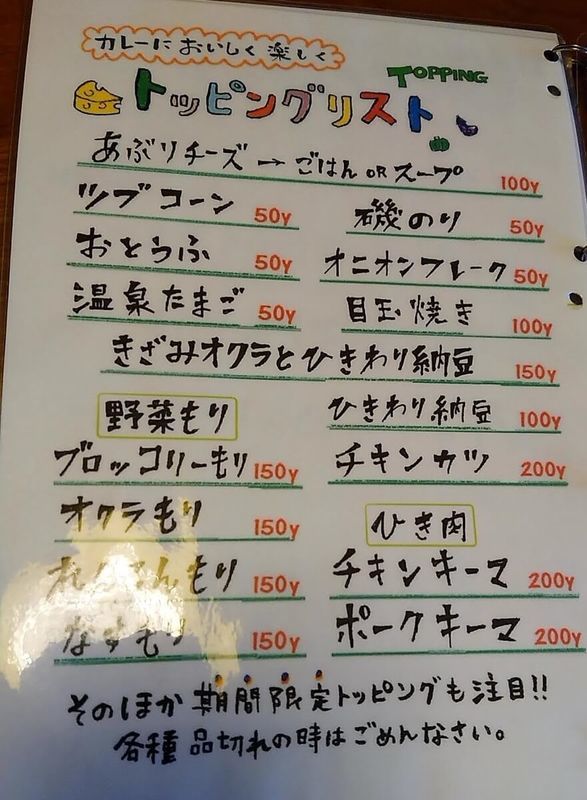 カレーに おいしく 楽しく
TOPPING
トッピングリスト
あぶりチーズ → ごはん OR スープ 100y
ツブコーン 50y
磯のり 50y
おとうふ 50y
オニオンフレーク 50y
温泉たまご 50y
目玉焼き 100y
きざみオクラとひきわり納豆 150y
野菜もり
ひきわり納豆 100y
ブロッコリーもり 150y
チキンカツ 200y
オクラもり 150y
ひき肉
れんこんもり 150y
チキンキーマ 200y
なすもり 150y
ポークキーマ 200y
そのほか 期間限定トッピングも注目!!
各種 品切れの時はごめんなさい。